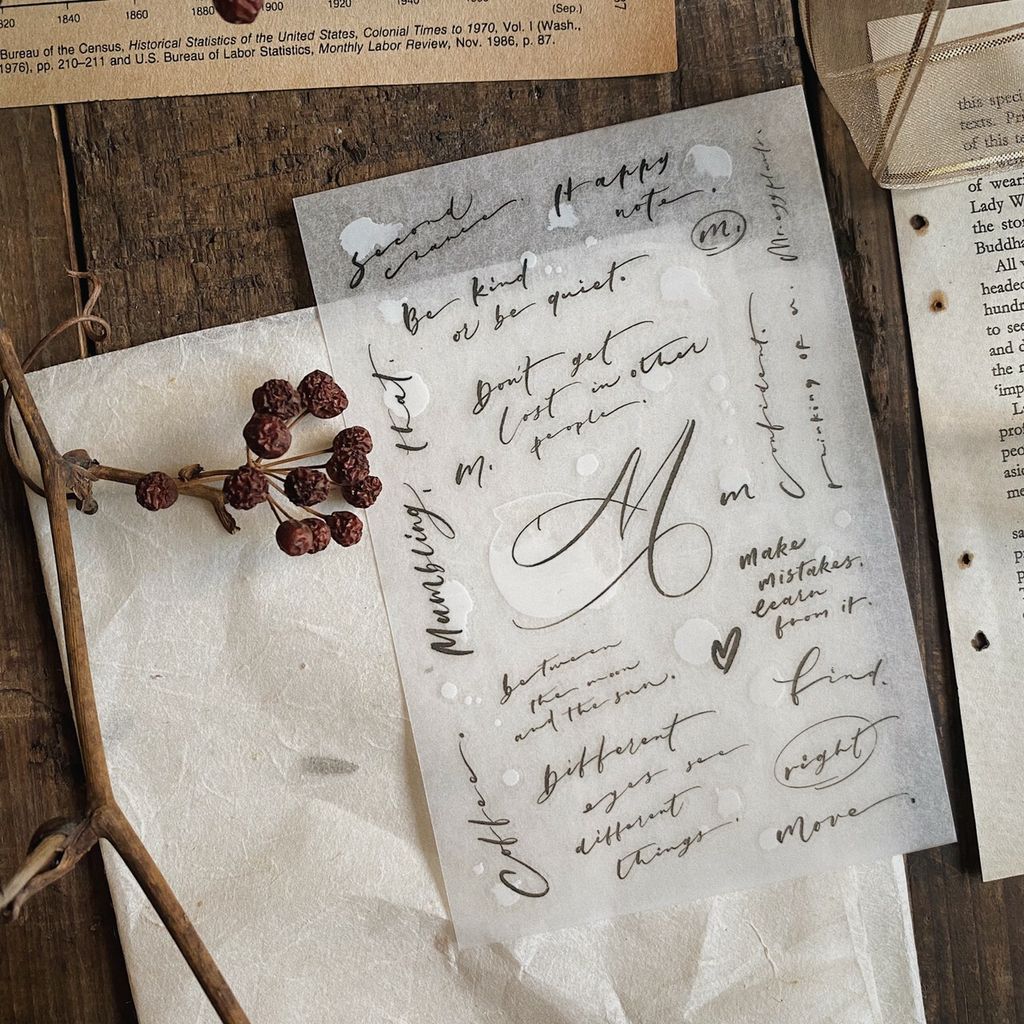 1840
1860
1880
1900
1920
1940
(Sep.)
Bureau of the Census, Historical Statistics of the United States, Colonial Times to 1970, Vol. I (Wash.,
1976), pp. 210–211 and U.S. Bureau of Labor Statistics, Monthly Labor Review, Nov. 1986, p. 87.
second
Happy
note.
M.
Be kind
or be quiet.
that.
Don't get
lost in other
people.
M.
M
m
Confident.
thinking of u.
Mumbling.
make
mistakes.
learn
from it.
between
the moon
and the sun.
find.
Different
eyes see
different
things.
right
move.
Coffee.
this speci
texts. Pr
of this te
of weari
Lady W
the stor
Buddha
All
headed
hundr
to see
and d
the
'imp
prof
peo
asid
me